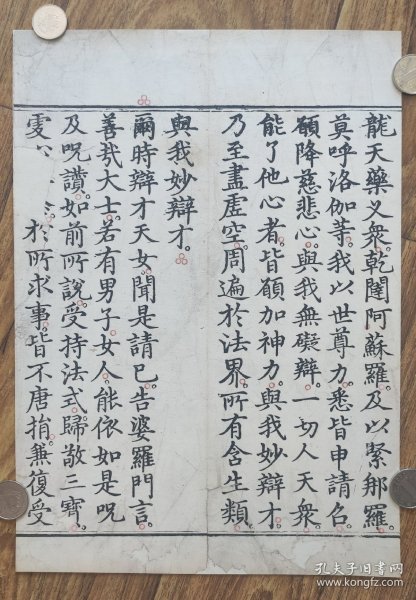 龍天藥叉衆乾闥阿蘇羅及以緊那羅
莫呼洛伽等我以世尊力悉皆申請召
願降慈悲心與我無礙辯一切人天衆
能了他心者皆願加神力與我妙辯才
乃至盡虛空周遍於法界所有含生類
與我妙辯才
爾時辯才天女聞是請已告婆羅門言
善哉大士若有男子女人能依如是呪
及呪讚如前所說受持法式歸敬三寶
虔於所求事皆不唐捐兼復受
孔夫子旧书网
www.kongfz.com